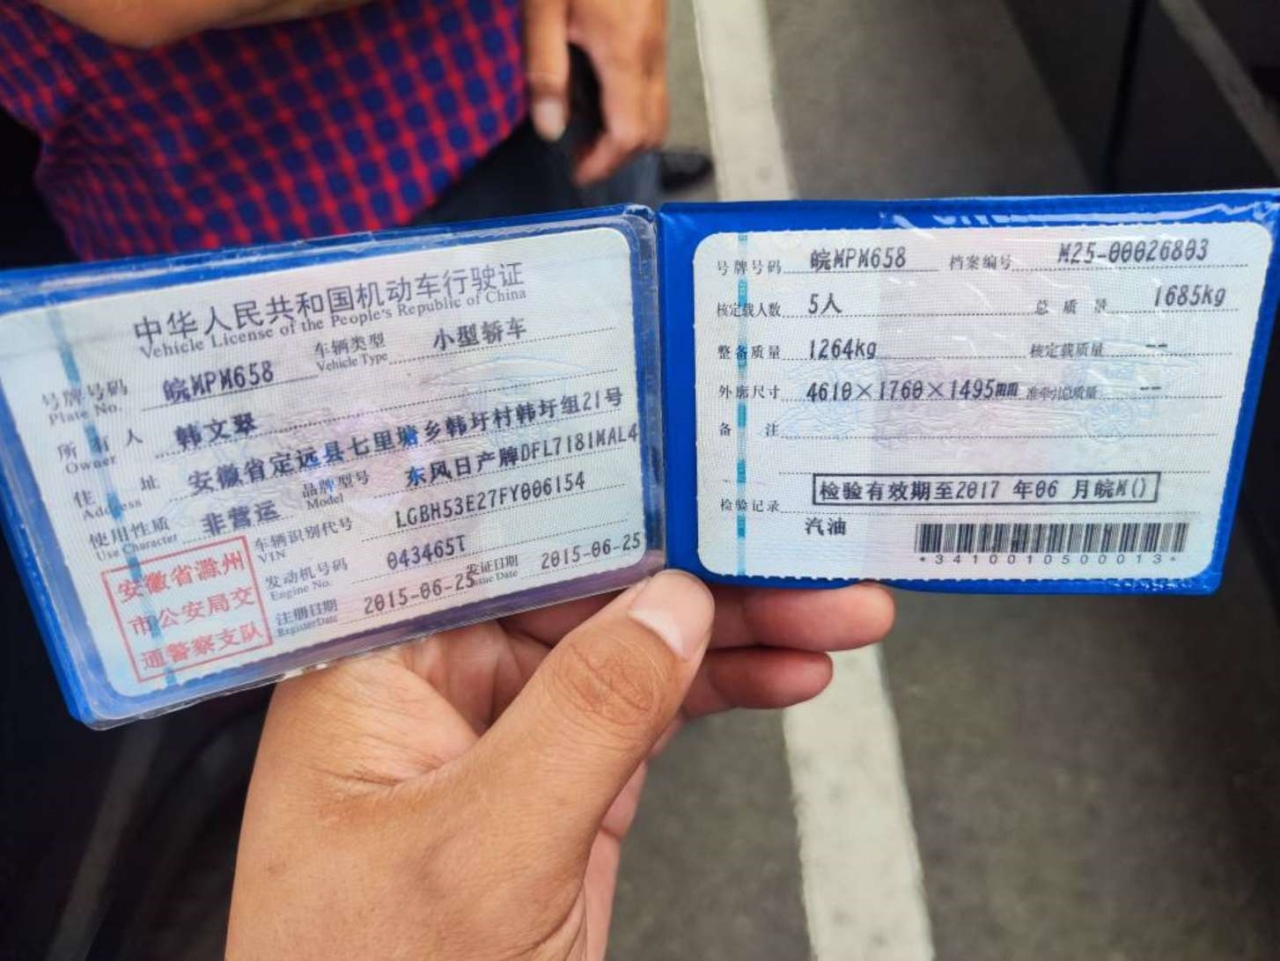 中华人民共和国机动车行驶证
Vehicle License of the People's Republic of China
号牌号码 皖MPM658 车辆类型 小型轿车
Plate No. Vehicle Type
所有人 韩文翠
Owner
住址 安徽省定远县七里塘乡韩圩村韩圩组21号
Address
使用性质 非营运 品牌型号 东风日产牌DFL7181MAL4
Use Character Model
车辆识别代号 LGBH53E27FY006154
VIN
发动机号码 043465T
Engine No.
注册日期 2015-06-25 发证日期 2015-06-25
Register Date Issue Date
安徽省滁州
市公安局交
通警察支队
号牌号码 皖MPM658 档案编号 M25-00026803
核定载人数 5人 总质量 1685kg
整备质量 1264kg 核定载质量 --
外廓尺寸 4610×1760×1495mm 准牵引总质量 --
备注
检验记录 检验有效期至2017 年06 月皖M()
汽油
*3410010500013*